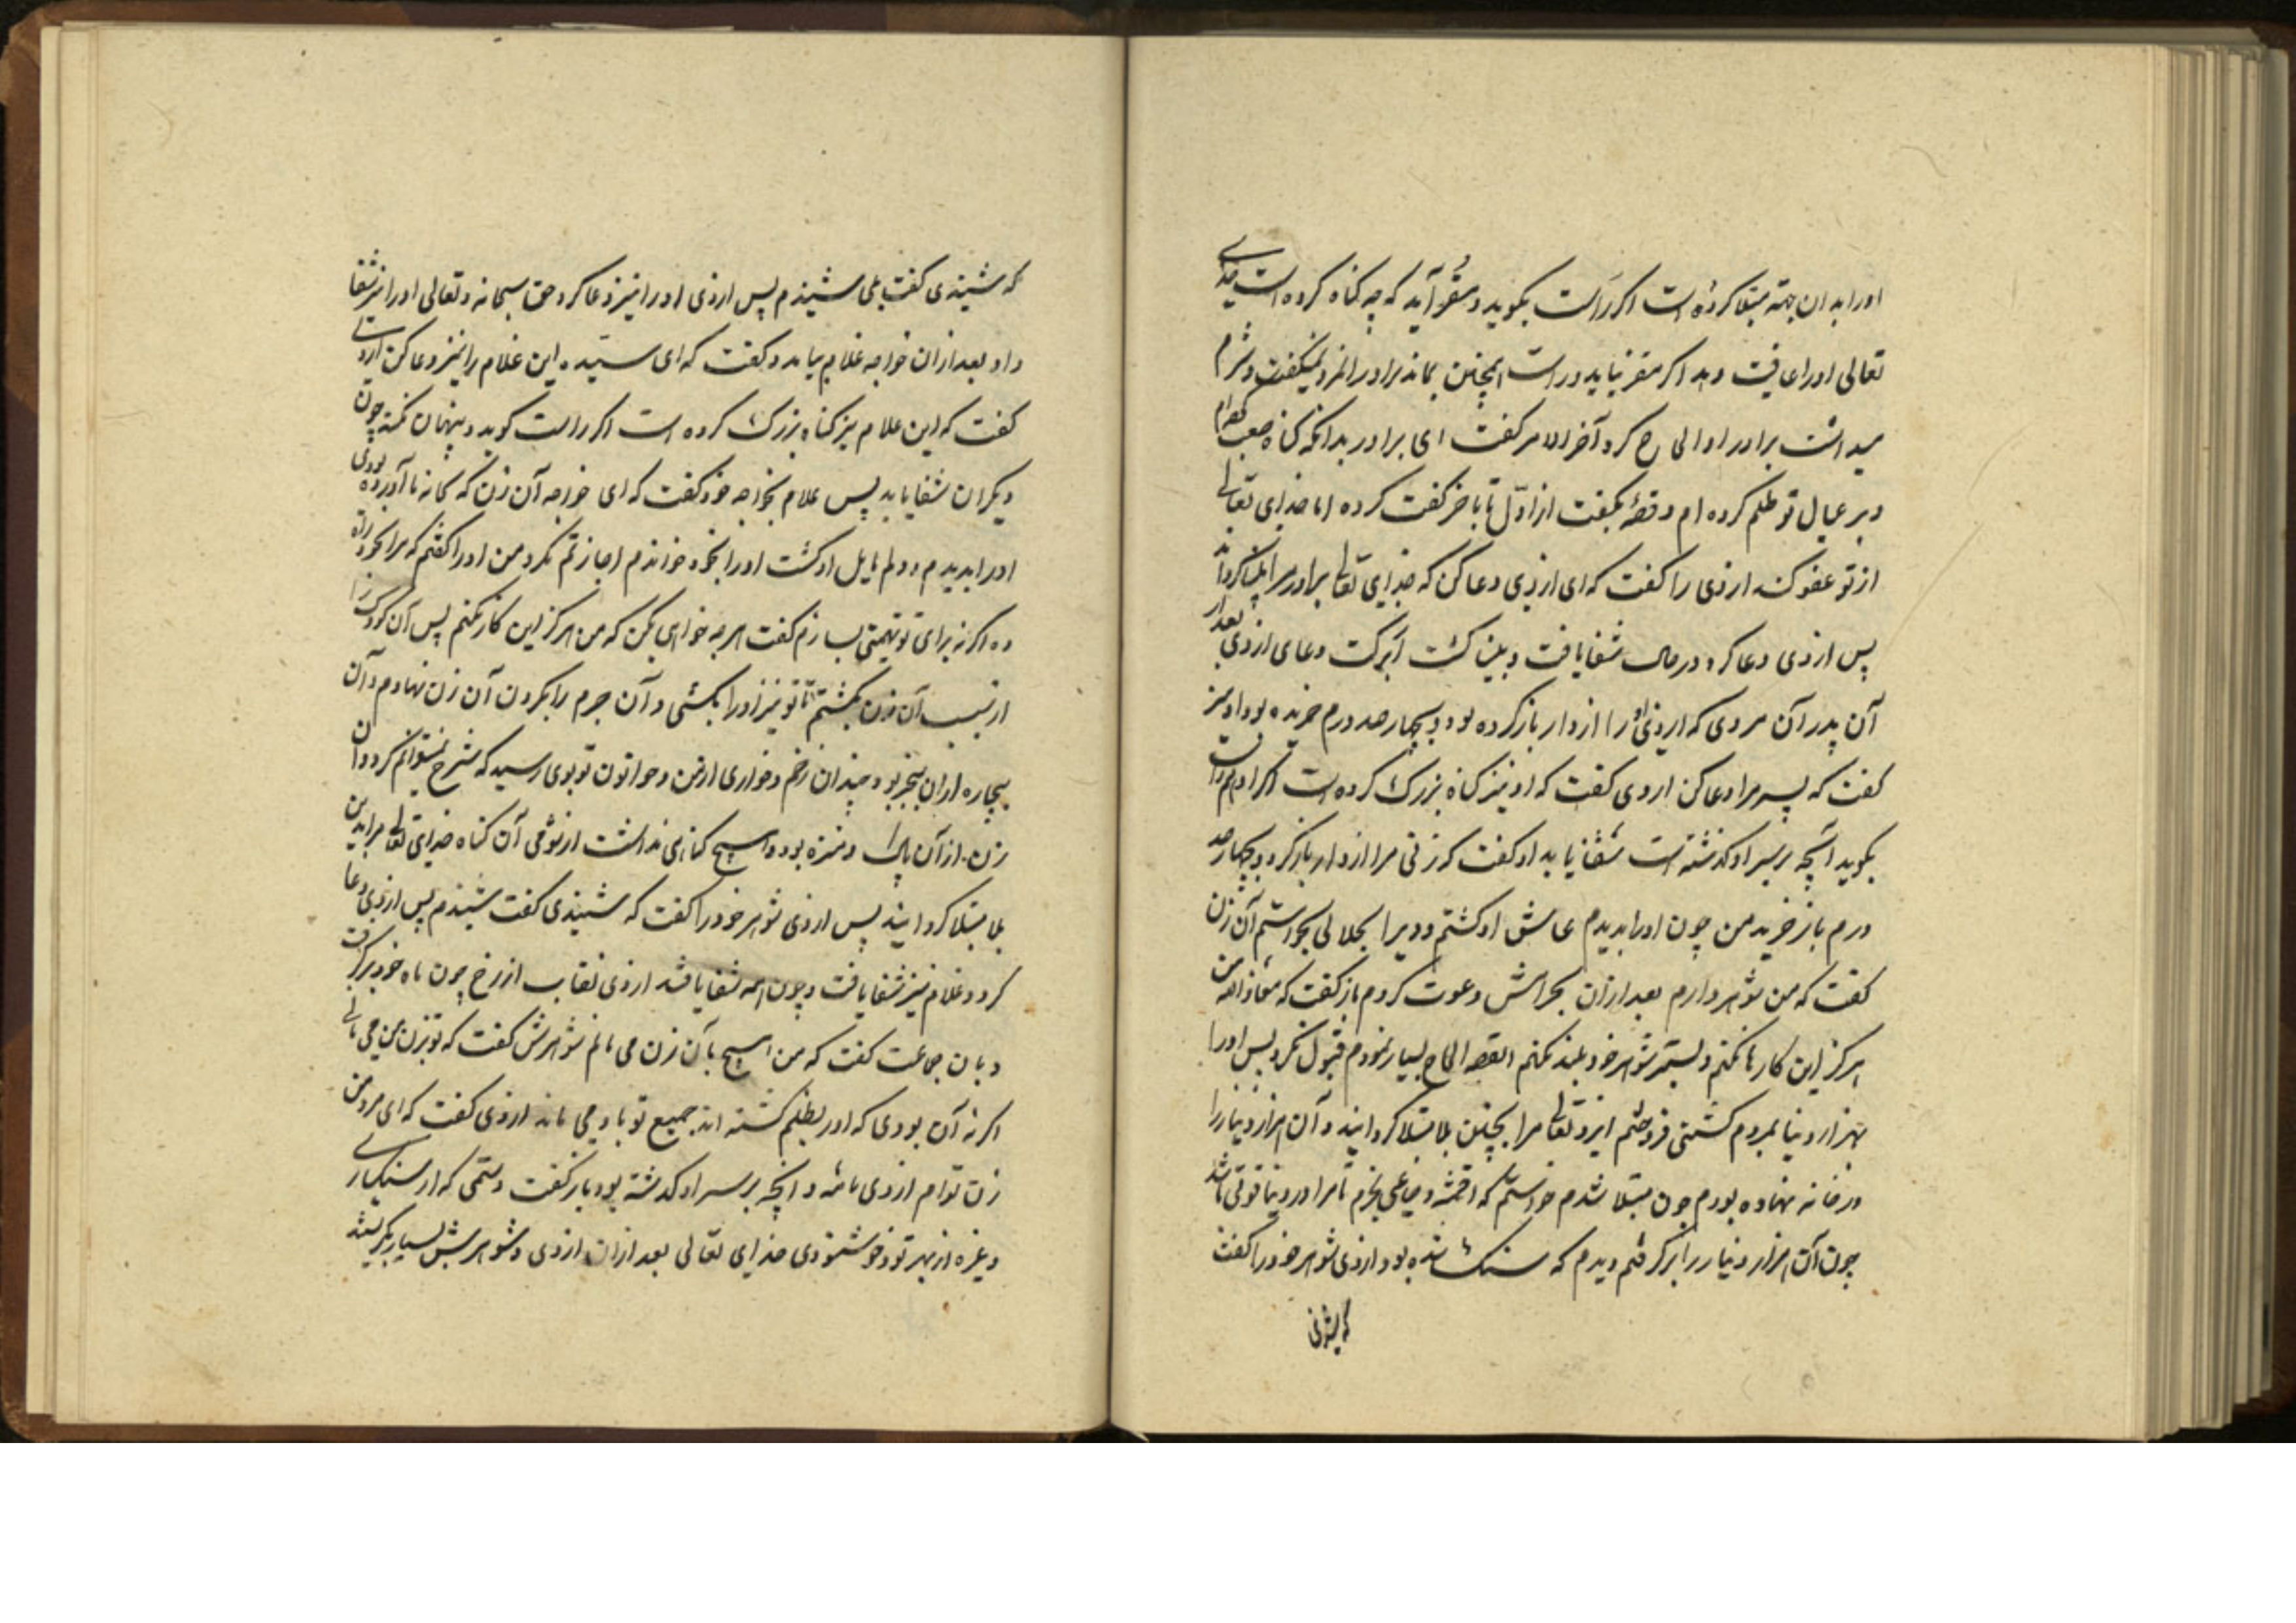 اورا بدان جهته مبتلا کرده است اکر راست بکوید و مقر آید که چه کناه کرده است خدای
تعالی اورا عافیت دهد اکر مقر نیاید و راست همچنین بماند برادر انمرد نمیکفت و شرم
میداشت برادر اوالحاح کرد آخر الامر کفت ای برادر بدانکه کناه صعب کرده‌ام
و بر عیال تو ظلم کرده ام و قصه بکفت از اول تا باخر کفت کرده اما خدای تعالی
از تو عفو کند ارذی را کفت که ای ارذی دعا کن که خدای تعالی برادر مرا بینا کرداند
پس ارذی دعا کرد در حال شفا یافت و بینا کشت ببرکت دعای ارذی بعد از
آن پدر آن مردی که ارذی او را از دار باز کرده بود و بچهارصد درم خریده بود او نیز
کفت که پسر مرا دعا کن ارذی کفت که او نیز کناه بزرک کرده است اکر او هم راست
بکوید آنچه بر سر او کذشته است شفا یابد او کفت که زنی مرا از دار باز کرد و بچهارصد
درم باز خرید من چون اورا بدیدم عاشق او کشتم و ویرا بحلالی بجوستم آن زن
کفت که من شوهر دارم بعد از آن بحرامش دعوت کردم باز کفت که معاذ الله من
هرکز این کارها نکنم و بستر شوهر خود پلید نکنم القصه الحاح بسیار نمودم قبول نکرد پس اورا
بهزار دینا بمردم کشتی فروختم ایزد تعالی مرا بچنین بلا مبتلا کردانید و آن هزار دینار را
در خانه نهاده بودم چون مبتلا شدم خواستم که اقمشه و ضیاعی بخرم تا مرا در دنیا قوتی باشد
چون آن هزار دینار را برکرفتم دیدم که سنک شده بود ارذی شوهر خود را کفت
که شنیدی
که شنیدی کفت بلی شنیدم پس ارذی اورا نیز دعا کرد حق سبحانه و تعالی اورا نیز شفا
داد بعد از ان خواجه غلام بیامد و کفت که ای سیده این غلام را نیز دعا کن ارذی
کفت که این غلام نیز کناه بزرک کرده است اکر راست کوید و پنهان نکند چون
دیکران شفا یابد پس غلام بخواجه خود کفت که ای خواجه آن زن که بخانه ما آورده بودی
اورا بدیدم و دلم مایل او کشت اورا بخود خواندم اجازتم نکرد من اورا کفتم که مرا بخود راه
ده اکر نه برای تو تهمتی بسازم کفت هرچه خواهی بکن که من هرکز این کار نکنم پس آن کودک را
از سبب آن زن بکشتم تا تو نیز اورا بکشی و آن جرم را بکردن آن زن نهادم و آن
بیچاره از ان بیخبر بود چندان زخم و خواری از من و خواتون تو بوی رسید که شرح نمیتوانم کرد و آن
زن از آن پاک و منزه بود و هیچ کناهی نداشت از شومی آن کناه خدای تعالی مرا بدین
بلا مبتلا کردانید پس ارذی شوهر خود را کفت که شنیدی کفت شنیدم پس ارذی دعا
کرد و غلام نیز شفا یافت و چون همه شفا یافتند ارذی نقاب از رخ چون ماه خود برکرفت
و بان جماعت کفت که من هیچ بآن زن می مانم شوهرش کفت که تو بزن من می مانی
اکر نه آن بودی که اورا بظلم کشته اند جمیع تو باو می ماند ارذی کفت که ای مرد من
زن توام ارذی نامه و آنچه بر سر او کذشته بود باز کفت و ستمی که از سنکساری
و غیره از بهر تو و خوشنودی خدای تعالی بعد از ان ارذی و شوهرش بسیار بکریستند